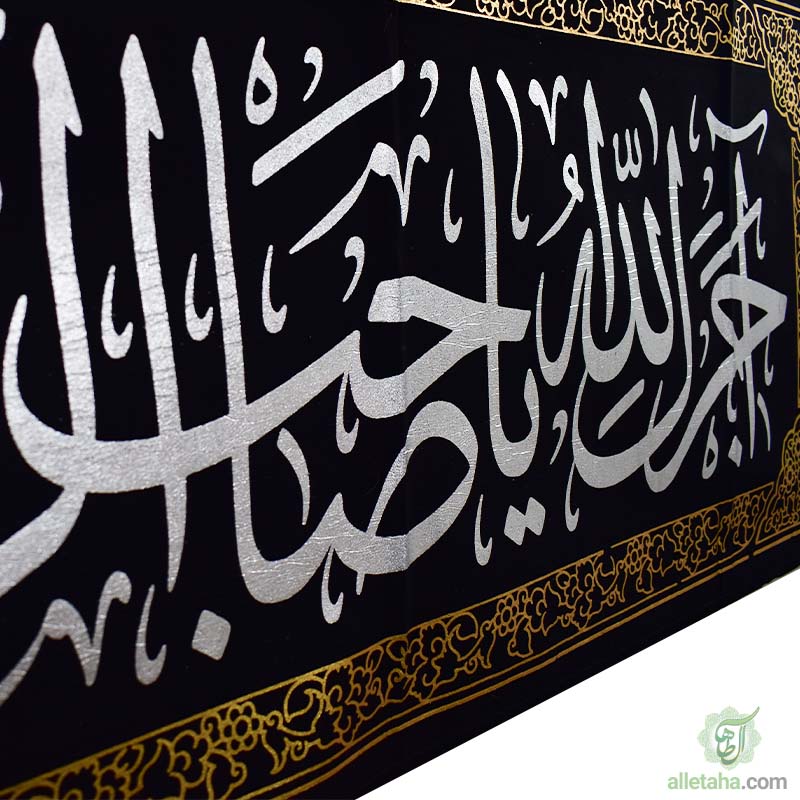 آجَرَکَ اللهُ یا صاحِبَ
alletaha.com